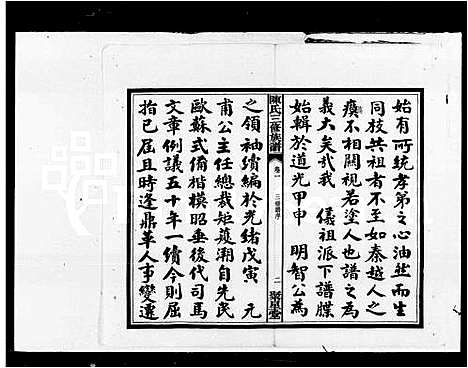 始有所統孝弟之心油然而生
同枝共祖者不至如秦越人之
瘼不相關視若塗人也譜之為
義大矣哉我 儀祖派下譜牒
始輯於道光甲申 明智公為
陳氏三修族譜 卷一 三修譜序 二 聚星堂
之領袖續編於光緒戊寅 元
甫公主任總裁矩矱溯自先民
歐蘇式備楷模昭垂後代司馬
文章例議五十年一續今則屈
指已屆且時逢鼎革人事變遷